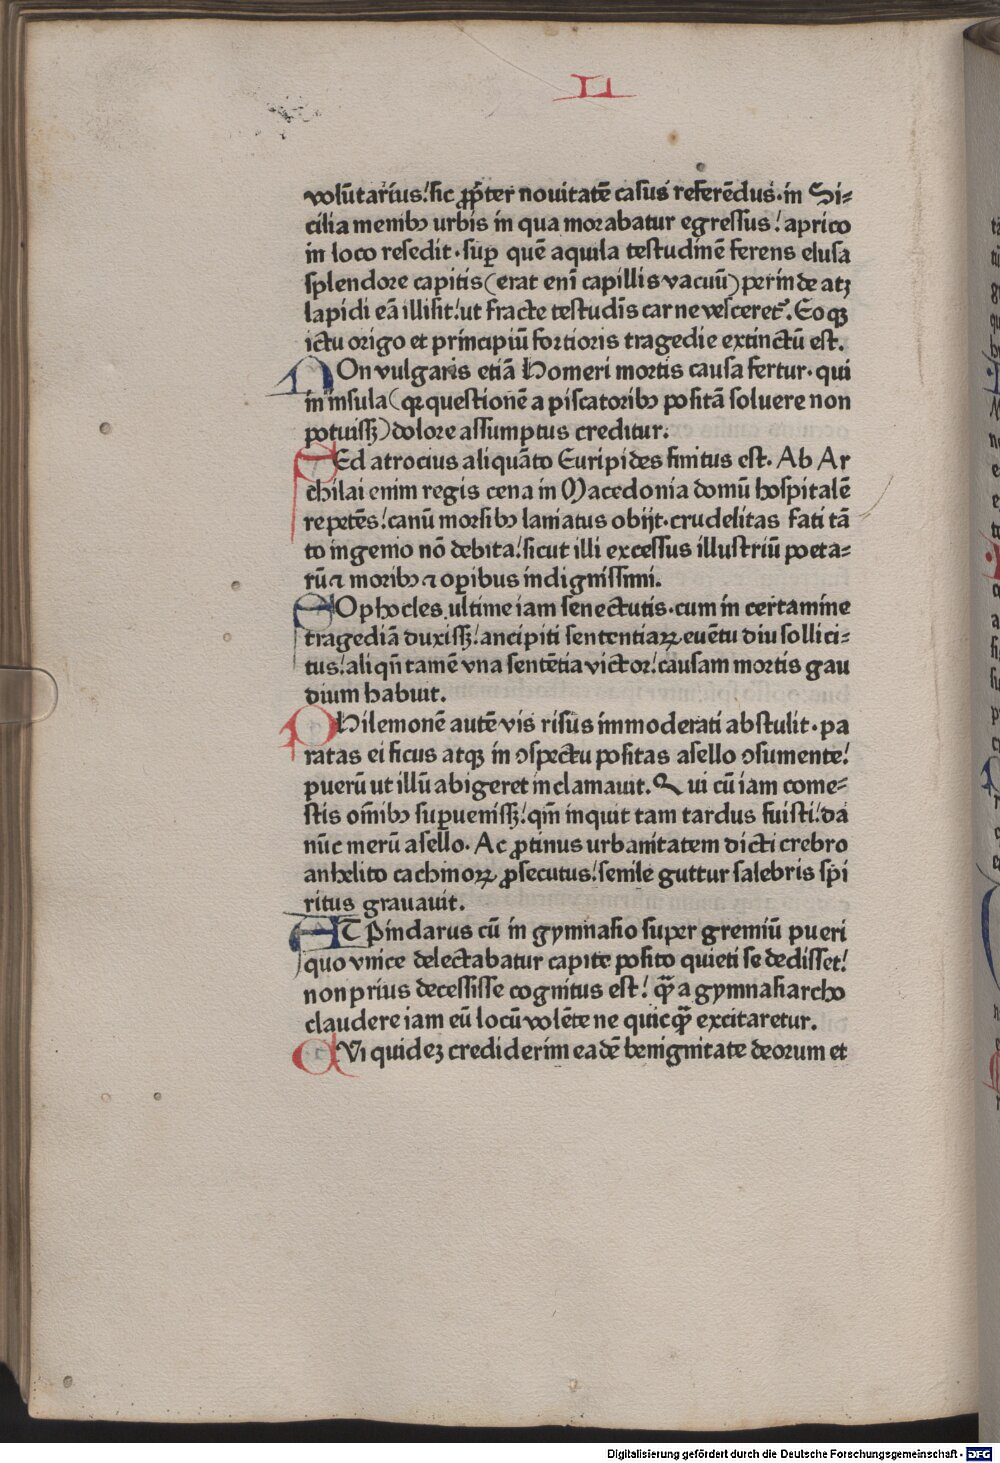 LI
volūtarius: sic ꝓpter nouitatē casus referēdus· in Si⸗
cilia menibꝰ urbis in qua morabatur egressus: aprico
in loco resedit· sup quē aquila testudinē ferens elusa
splendore capitis (erat enī capillis vacuū) perinde atqꝫ
lapidi eā illisit: ut fracte testudīs carne vesceret᷑. Eo qꝫ
ictu origo et principiū fortioris tragedie extinctū est.
NOn vulgaris etiā Homeri mortis causa fertur· qui
in insula (qꝛ questionē a piscatoribꝰ positā soluere non
potuissꝫ) dolore assumptus creditur.
SEd atrocius aliquāto Euripides finitus est. Ab Ar
chilai enim regis cena in Macedonia domū hospitalē
repetēs: canū morsibꝰ laniatus obijt· crudelitas fati tā
to ingenio nō debita: sicut illi excessus illustriū poeta⸗
rū ⁊ moribꝰ ⁊ oꝑibus indignissimi.
SOphocles ultime iam senectutis· cum in certamine
tragediā duxissꝫ: ancipiti sententiaꝝ euētu diu sollici⸗
tus: aliqn̄ tamē vna sentētia victor: causam mortis gau
dium habuit.
PHilemonē autē vis risus immoderati abstulit· pa
ratas ei ficus atqꝫ in ꝯspectu positas asello ꝯsumente:
puerū ut illū abigeret inclamauit. Qui cū iam come⸗
stis om̄ibꝰ suꝑuenissꝫ: qm̄ inquit tam tardus fuisti: da
nūc merū asello. Ac ꝓtinus urbanitatem dicti crebro
anhelito cachinoꝝ ꝓsecutus: senile guttur salebris spi
ritus grauauit.
AT Pindarus cū in gymnasio super gremiū pueri
quo vnice delectabatur capite posito quieti se dedisset:
non prius decessisse cognitus est: qꝫ̄ a gymnasiarcho
claudere iam eū locū volēte ne quicqꝫ̄ excitaretur.
CVi quideꝫ crediderim eadē benignitate deorum et
Digitalisierung gefördert durch die Deutsche Forschungsgemeinschaft · DFG